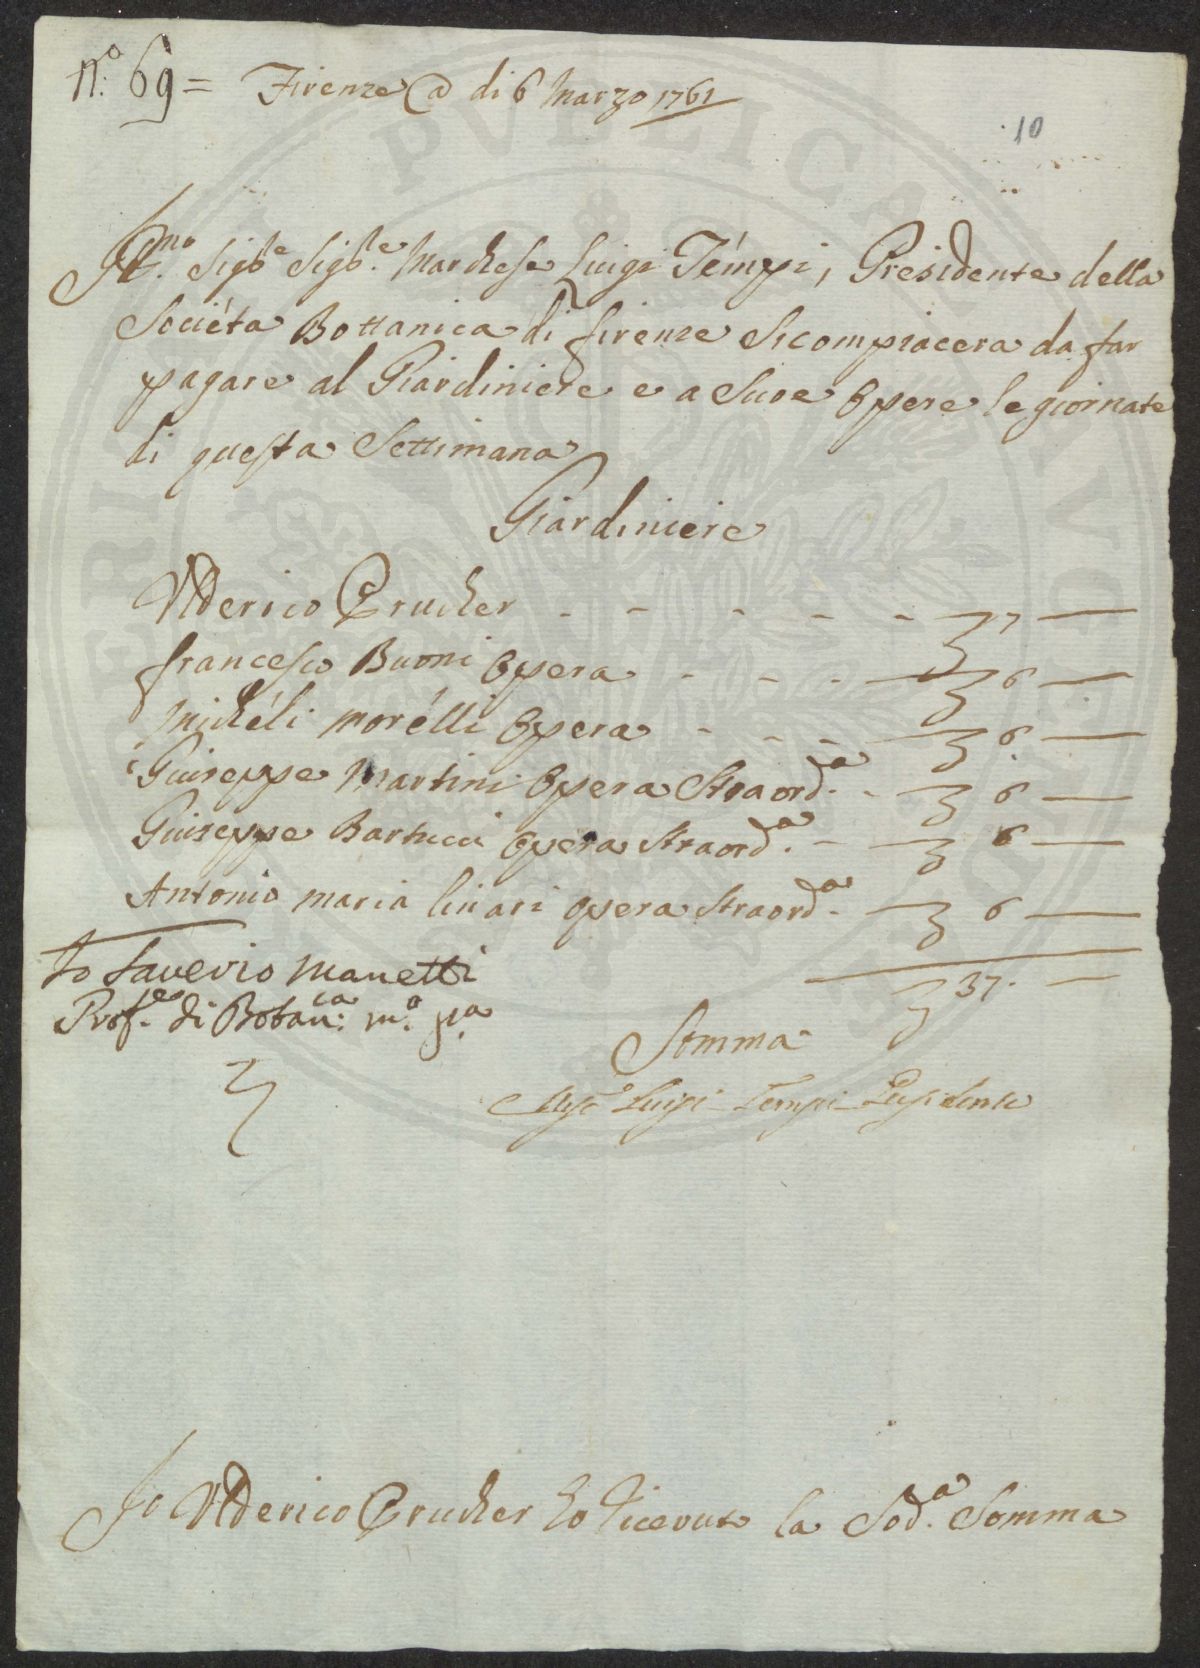 N.º 69 = Firenze @ di 6 Marzo 1761
10
Ill.mo Sig.re Sig.re Marchese Luigi Témpi, Presidente della
Sociéta Bottanica di firenze Si compiacera da far
pagare al Giardiniere e a Suoe Opere le giornate
di questa Settimana
Giardiniere
Ulderico Prucher - - - - - 7 —
francesco Buoni Opera - - - 6 —
Michéli morélli Opera - - - 6 —
Giuseppe Martini Opera Straord.a - 6 —
Giuseppe Bartucci Opera Straord.a - 6 —
Antonio maria linari opera Straord.a - 6 —
37. —
Io Saverio Manetti
Prof.e di Botan.ca m.o p.a
Somma
Luigi Tempi Presidente
Io Ulderico Prucher ho Ricevuto la Sod.a Somma